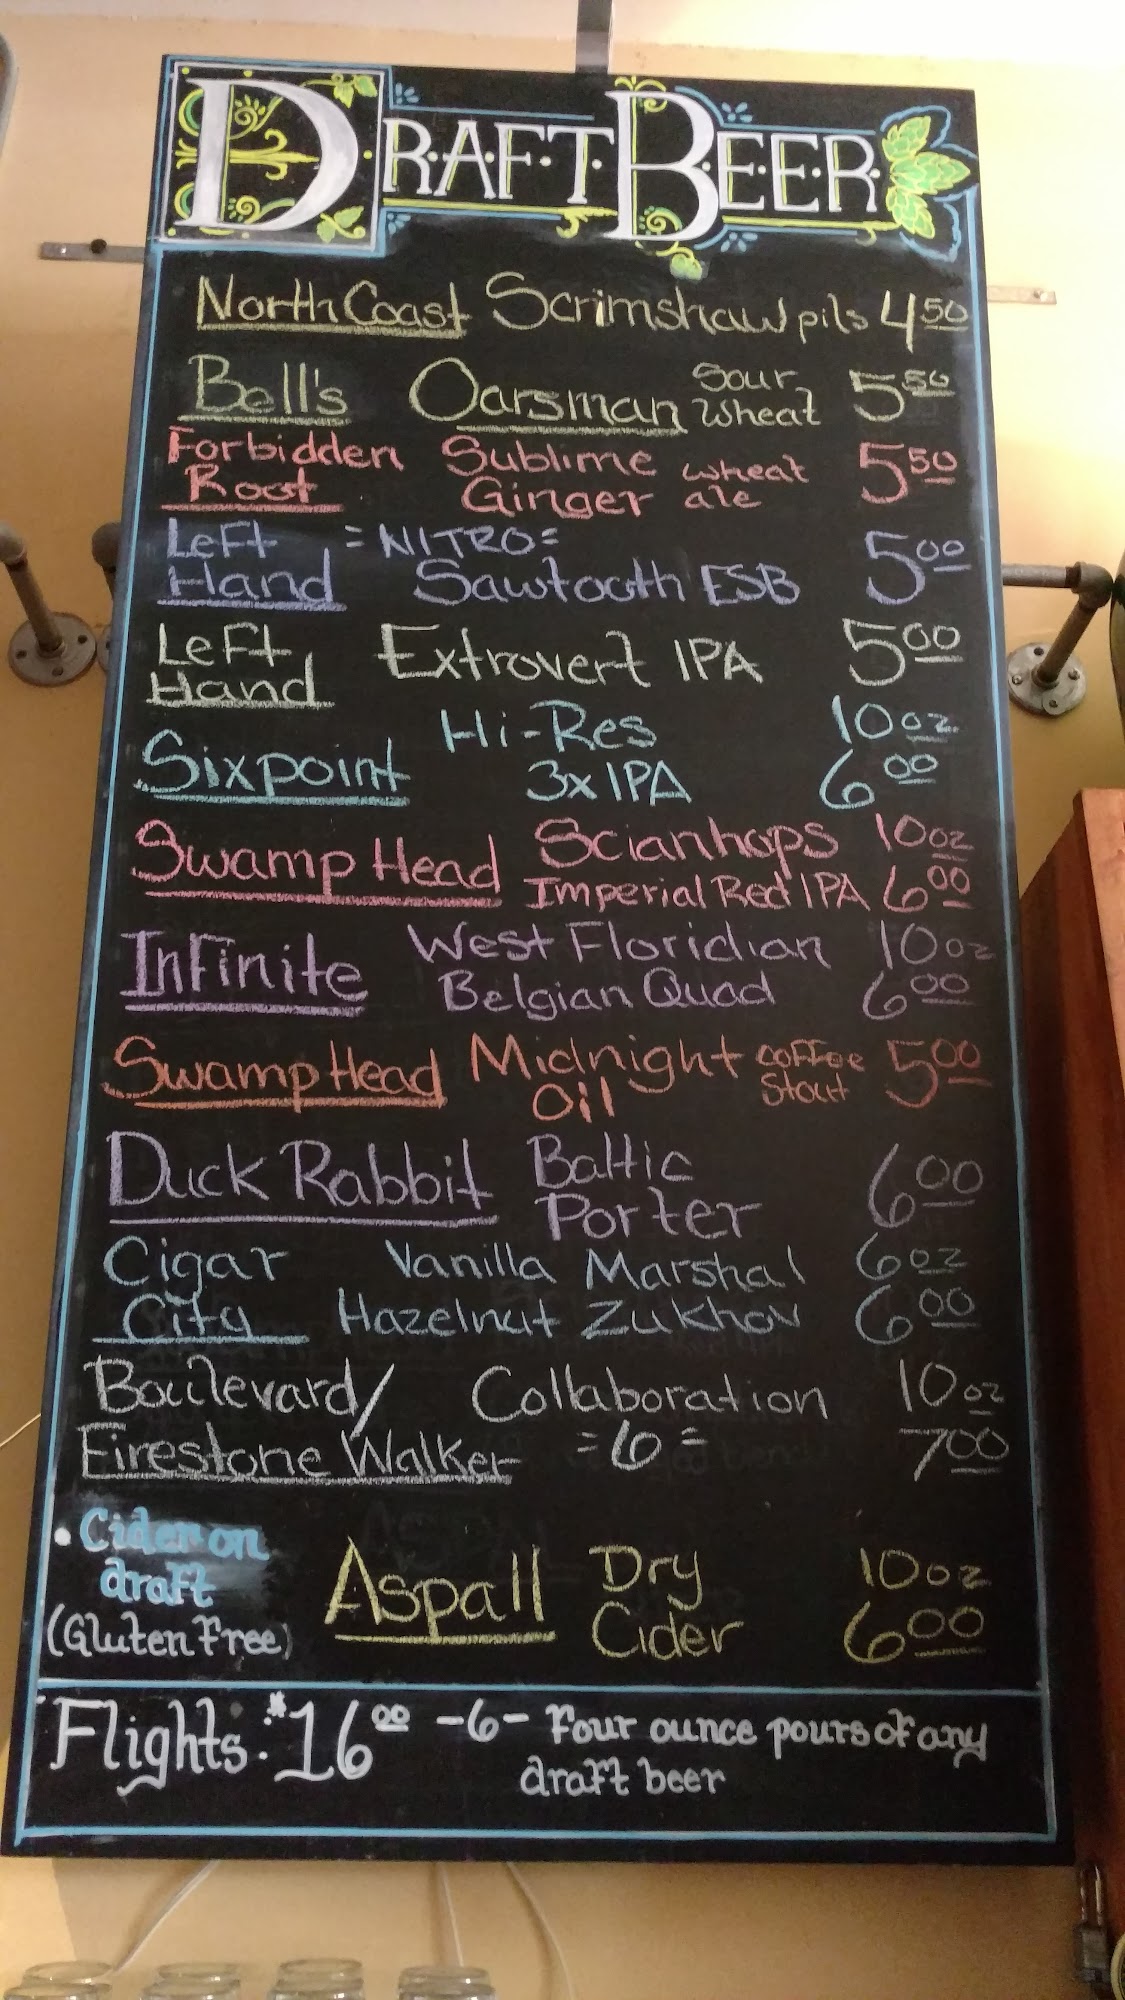 DRAFT BEER
North Coast Scrimshaw pils 4.50
Bell's Oarsman Sour Wheat 5.50
Forbidden Root Sublime Ginger wheat ale 5.50
Left Hand =NITRO= Sawtooth ESB 5.00
Left Hand Extrovert IPA 5.00
Sixpoint Hi-Res 3x IPA 10 oz. 6.00
Swamp Head Scianhops Imperial Red IPA 10 oz 6.00
Infinite West Floridian Belgian Quad 10 oz 6.00
Swamp Head Midnight Oil coffee Stout 5.00
Duck Rabbit Baltic Porter 6.00
Cigar City Vanilla Hazelnut Marshal Zukhov 6 oz 6.00
Boulevard/ Firestone Walker Collaboration =6= 10 oz 7.00
• Cider on draft (Gluten Free) Aspall Dry Cider 10 oz 6.00
Flights: $16.00 -6- Four ounce pours of any
draft beer